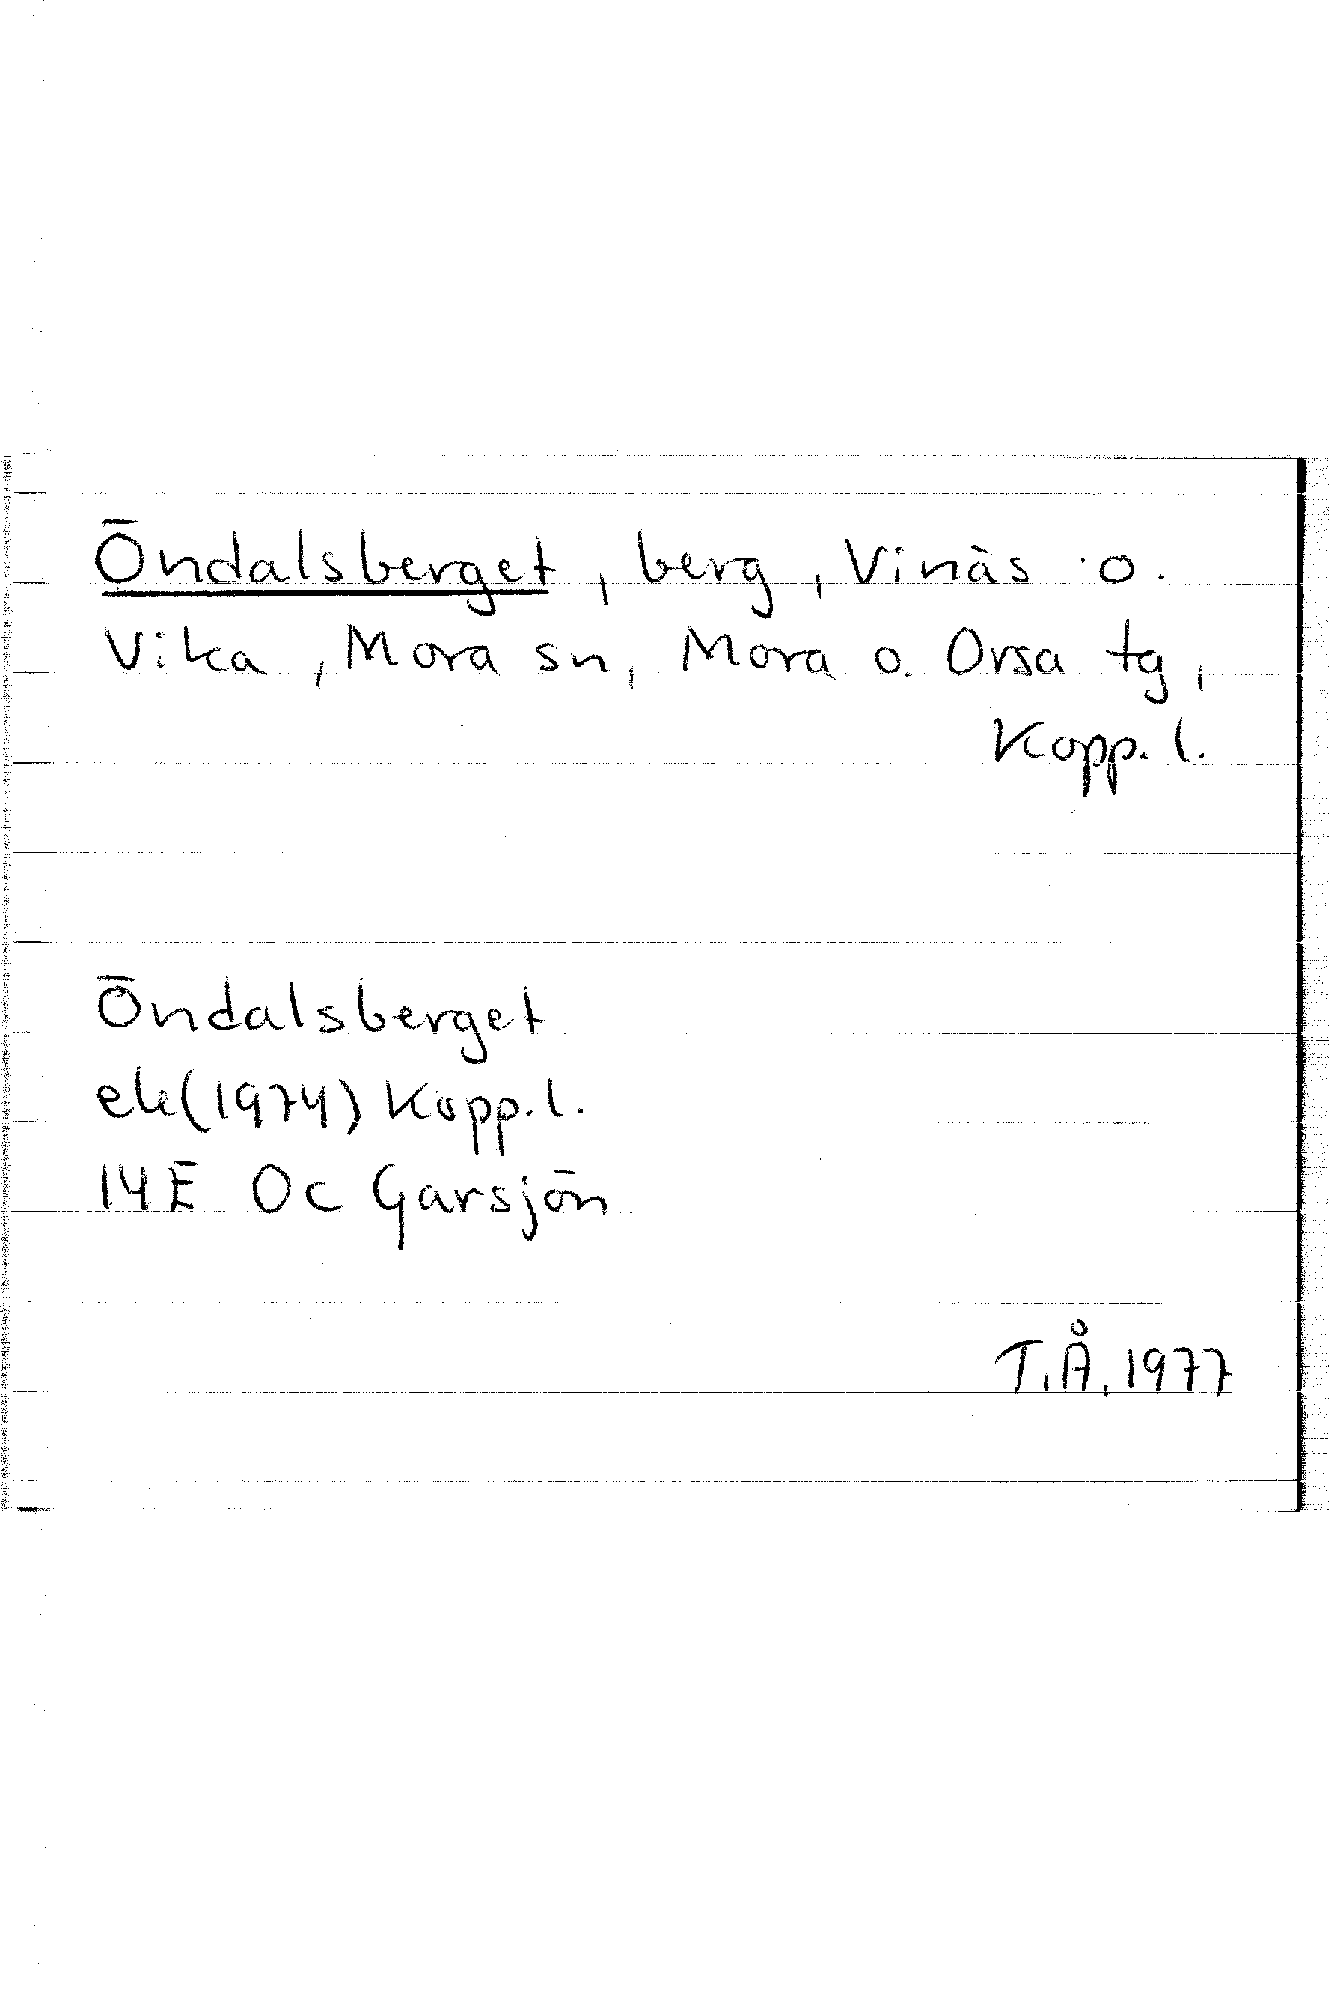 Öndalsberget, berg, Vinäs o.
Vika, Mora sn, Mora o. Orsa tg,
Kopp. l.
Öndalsberget
ek (1974) Kopp. l.
14E Oc Garsjön
T.Å. 1977